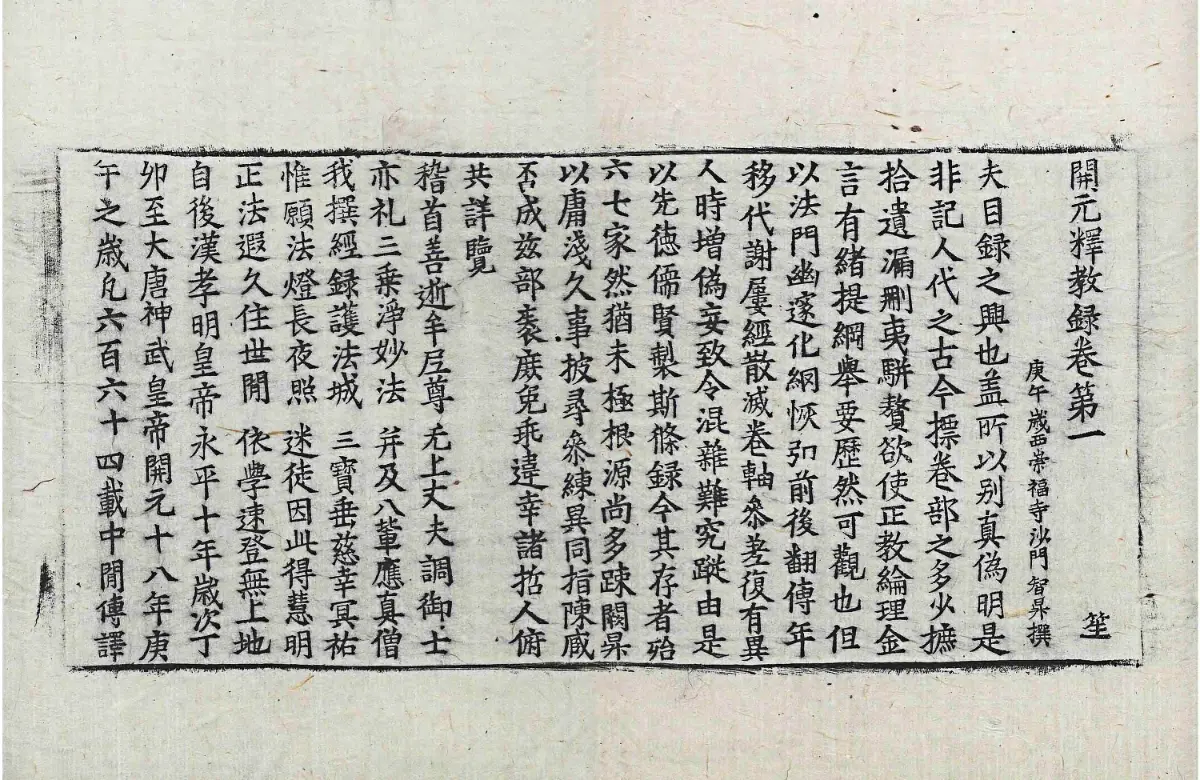 開元釋教録卷第一 笙
庚午歲西崇福寺沙門智昇撰
夫目録之興也盖所以别真偽明是
非記人代之古今摽卷部之多少摭
拾遺漏刪夷駢贅欲使正教綸理金
言有緒提綱舉要歷然可觀也但
以法門幽邃化網恢弘前後翻傳年
移代謝屢經散滅卷軸叅差復有異
人時增偽妄致令混雜難究蹤由是
以先徳儒賢製斯條録今其存者殆
六七家然猶未極根源尚多踈闕昇
以庸淺久事披尋叅練異同指陳臧
否成兹部袠庻免乖違幸諸哲人俯
共詳覽
稽首善逝牟尼尊 无上丈夫調御士
亦礼三乗淨妙法 并及八輩應真僧
我撰經録護法城 三寶垂慈幸冥祐
惟願法燈長夜照 迷徒因此得慧明
正法遐久住世閒 依學速登無上地
自後漢孝明皇帝永平十年歲次丁
卯至大唐神武皇帝開元十八年庚
午之歲凡六百六十四載中閒傳譯